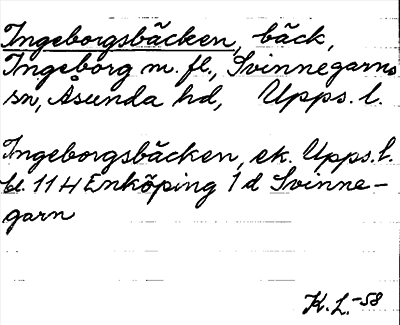 Ingeborgsbäcken, bäck,
Ingeborg m. fl., Svinnegarns
sn, Åsunda hd, Upps. l.
Ingeborgsbäcken, ek. Upps. l.
bl. 11 4 Enköping 1 d Svinne-
garn
K. L. -58